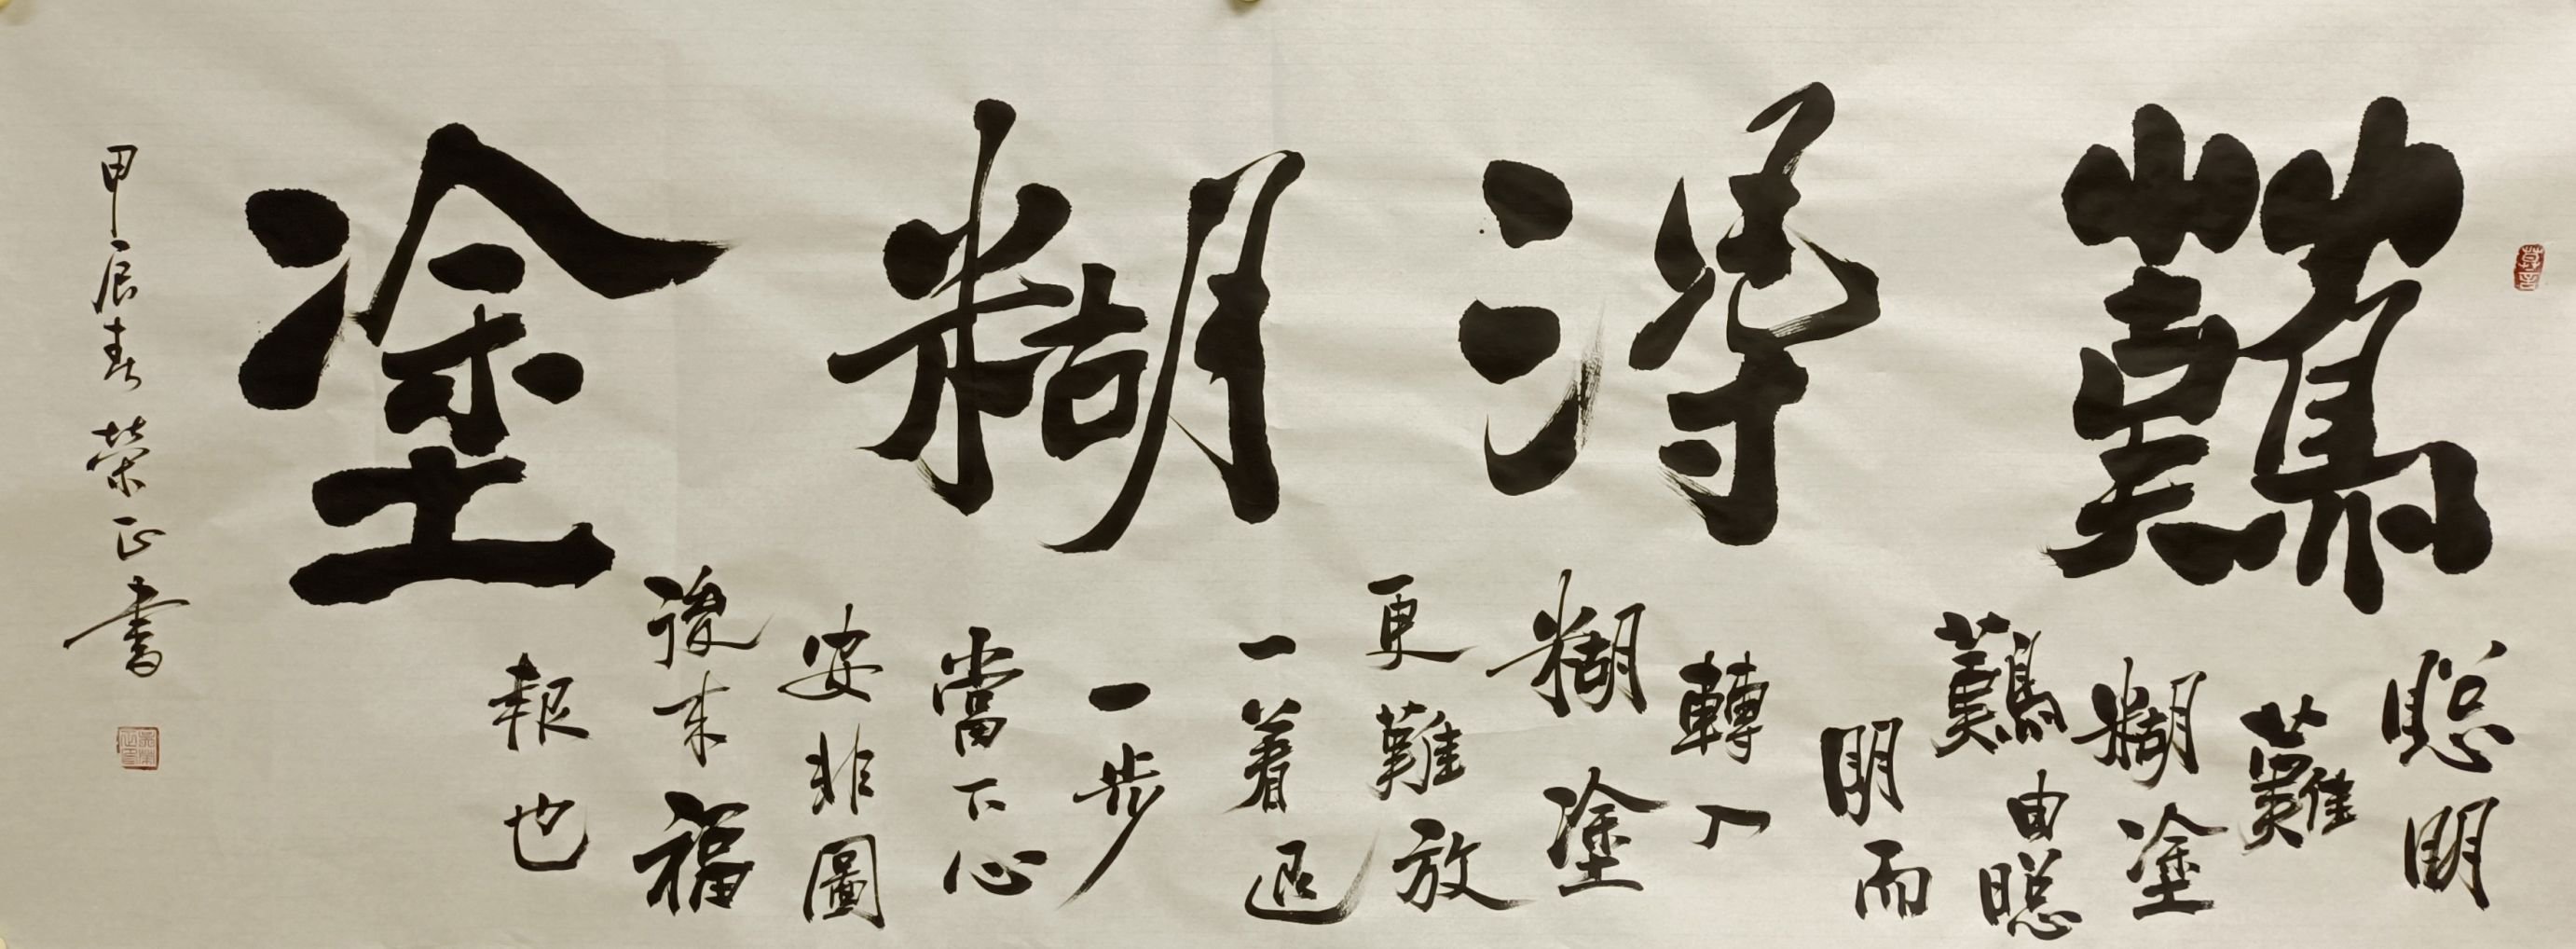 難得糊塗
聰明
難
糊塗
難由聰
明而
轉入
糊塗
更難放
一着退
一步
當下心
安非圖
後来福
報也
甲辰春榮正書